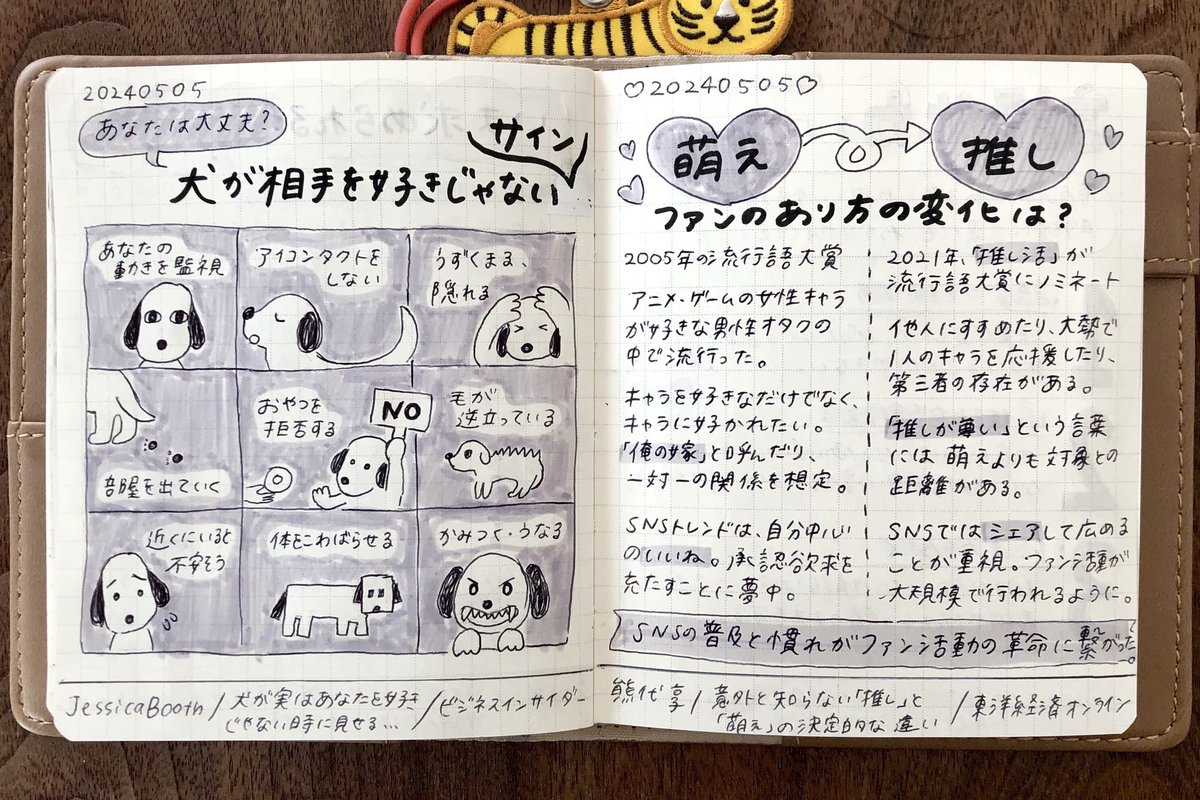 20240505
あなたは大丈夫?
犬が相手を好きじゃない
サイン
あなたの
動きを監視
アイコンタクトを
しない
うずくまる、
隠れる
部屋を出ていく
おやつを
拒否する
NO
毛が
逆立っている
近くにいると
不安そう
体をこわばらせる
かみつく・うなる
JessicaBooth/犬が実はあなたを好き
じゃない時に見せる…/ビジネスインサイダー
♡20240505♡
萌え
推し
ファンのあり方の変化は?
2005年の流行語大賞
アニメ・ゲームの女性キャラ
が好きな男性オタクの
中で流行った。
キャラを好きなだけでなく、
キャラに好かれたい。
「俺の嫁」と呼んだり、
一対一の関係を想定。
SNSトレンドは、自分中心
のいいね。承認欲求を
充たすことに夢中。
2021年、「推し活」が
流行語大賞にノミネート
他人にすすめたり、大勢で
1人のキャラを応援したり、
第三者の存在がある。
「推しが尊い」という言葉
には萌えよりも対象との
距離がある。
SNSではシェアして広める
ことが重視。ファン活動が
大規模で行われるように。
SNSの普及と慣れがファン活動の革命に繋がった。
熊代亨/意外と知らない「推し」と
「萌え」の決定的な違い/東洋経済オンライン